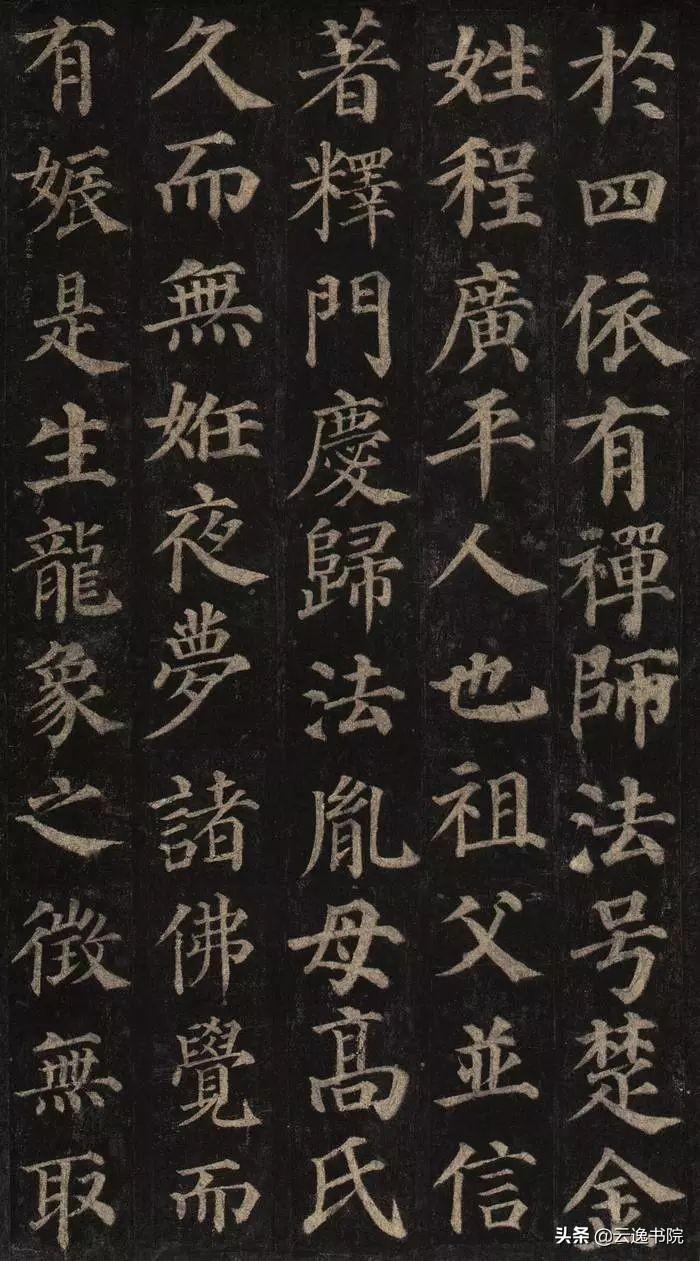 於四依有禪師法号楚金
姓程廣平人也祖父並信
著釋門慶歸法胤母高氏
久而無姙夜夢諸佛覺而
有娠是生龍象之徵無取
头条 @云逸书院